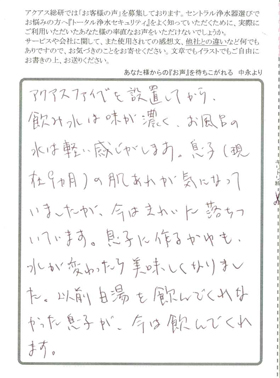 アクアス総研では「お客様の声」を募集しております。セントラル浄水器選びで
お悩みの方へ『トータル浄水セキュリティ』をよく知っていただくために、実際に
ご利用いただいたあなた様の率直なお声をいただけないでしょうか。
サービスや会社に関して、また使用されての感想文、他社との違いなど何でも
ありですので、お気づきのことをお寄せください。文章でもイラストでもご自由に
お書きの上、お送りください。
あなた様からの『お声』を待ちこがれる 中永より
アクアスファイブを設置してから、
飲み水は味が濃く、お風呂の
水は軽い感じがします。息子(現
在9カ月)の肌あれが気になって
いましたが、今はきれいに落ちつ
いています。息子に作るかゆも、
水が変わったら美味しくなりまし
た。以前白湯を飲んでくれな
かった息子が、今は飲んでくれ
ます。